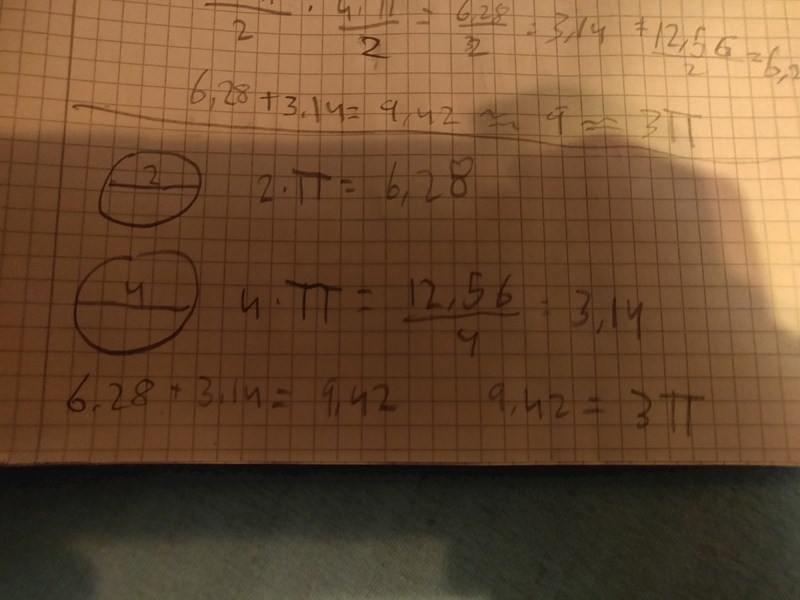 2 · 4·π/2 = 6,28/2 = 3,14 + 12,56/2 = 6,2
6,28 + 3,14 = 9,42 ≈ 9 ≈ 3π
2 2·π = 6,28
4 4·π = 12,56/4 = 3,14
6,28 + 3,14 = 9,42 9,42 = 3π